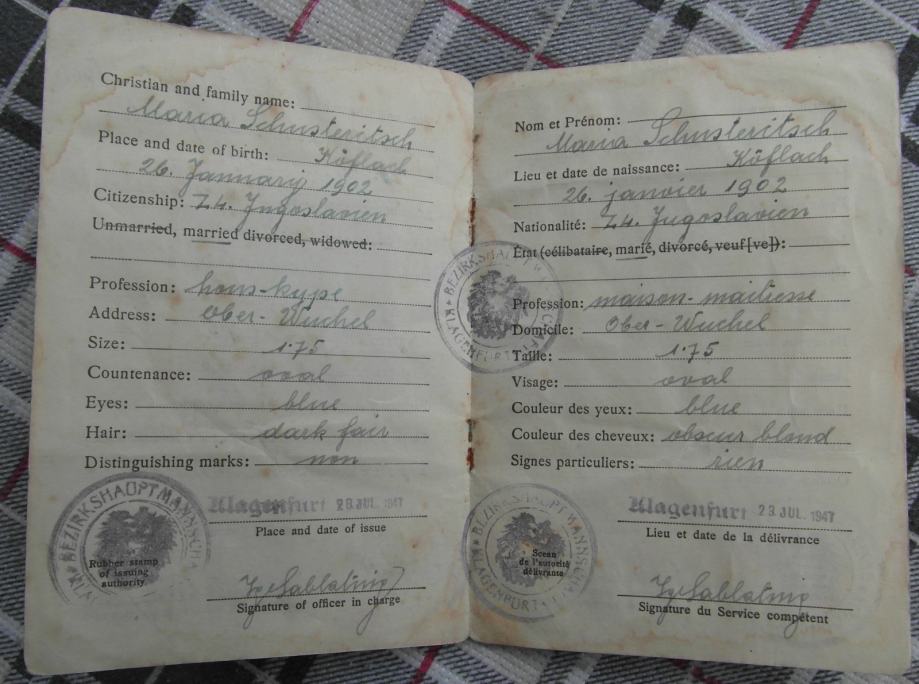 Christian and family name:
Maria Schusteritsch
Place and date of birth: Köflach
26. January 1902
Citizenship: Z4. Jugoslavien
Unmarried, married divorced, widowed:
Profession: hous-kype
Address: Ober-Wuchel
Size: 1·75
Countenance: oval
Eyes: blue
Hair: dark fair
Distinguishing marks: non
BEZIRKSHAUPTMANNSCHA
Rubber stamp
of issuing
authority.
Klagenfurt 23 JUL. 1947
Place and date of issue
Signature of officer in charge
BEZIRKSHAUPT
KLAGENFURT
Nom et Prénom:
Maria Schusteritsch
Lieu et date de naissance: Köflach
26. janvier 1902
Nationalité: Z4. Jugoslavien
État (célibataire, marié, divorcé, veuf[ve]):
Profession: maison-maitresse
Domicile: Ober-Wuchel
Taille: 1·75
Visage: oval
Couleur des yeux: blue
Couleur des cheveux: obscur blond
Signes particuliers: rien
BEZIRKSHAUPTMANNSCHA
KLAGENFURT
Scean
de l'autorité
délivrante
Klagenfurt 23 JUL. 1947
Lieu et date de la délivrance
Signature du Service compétent